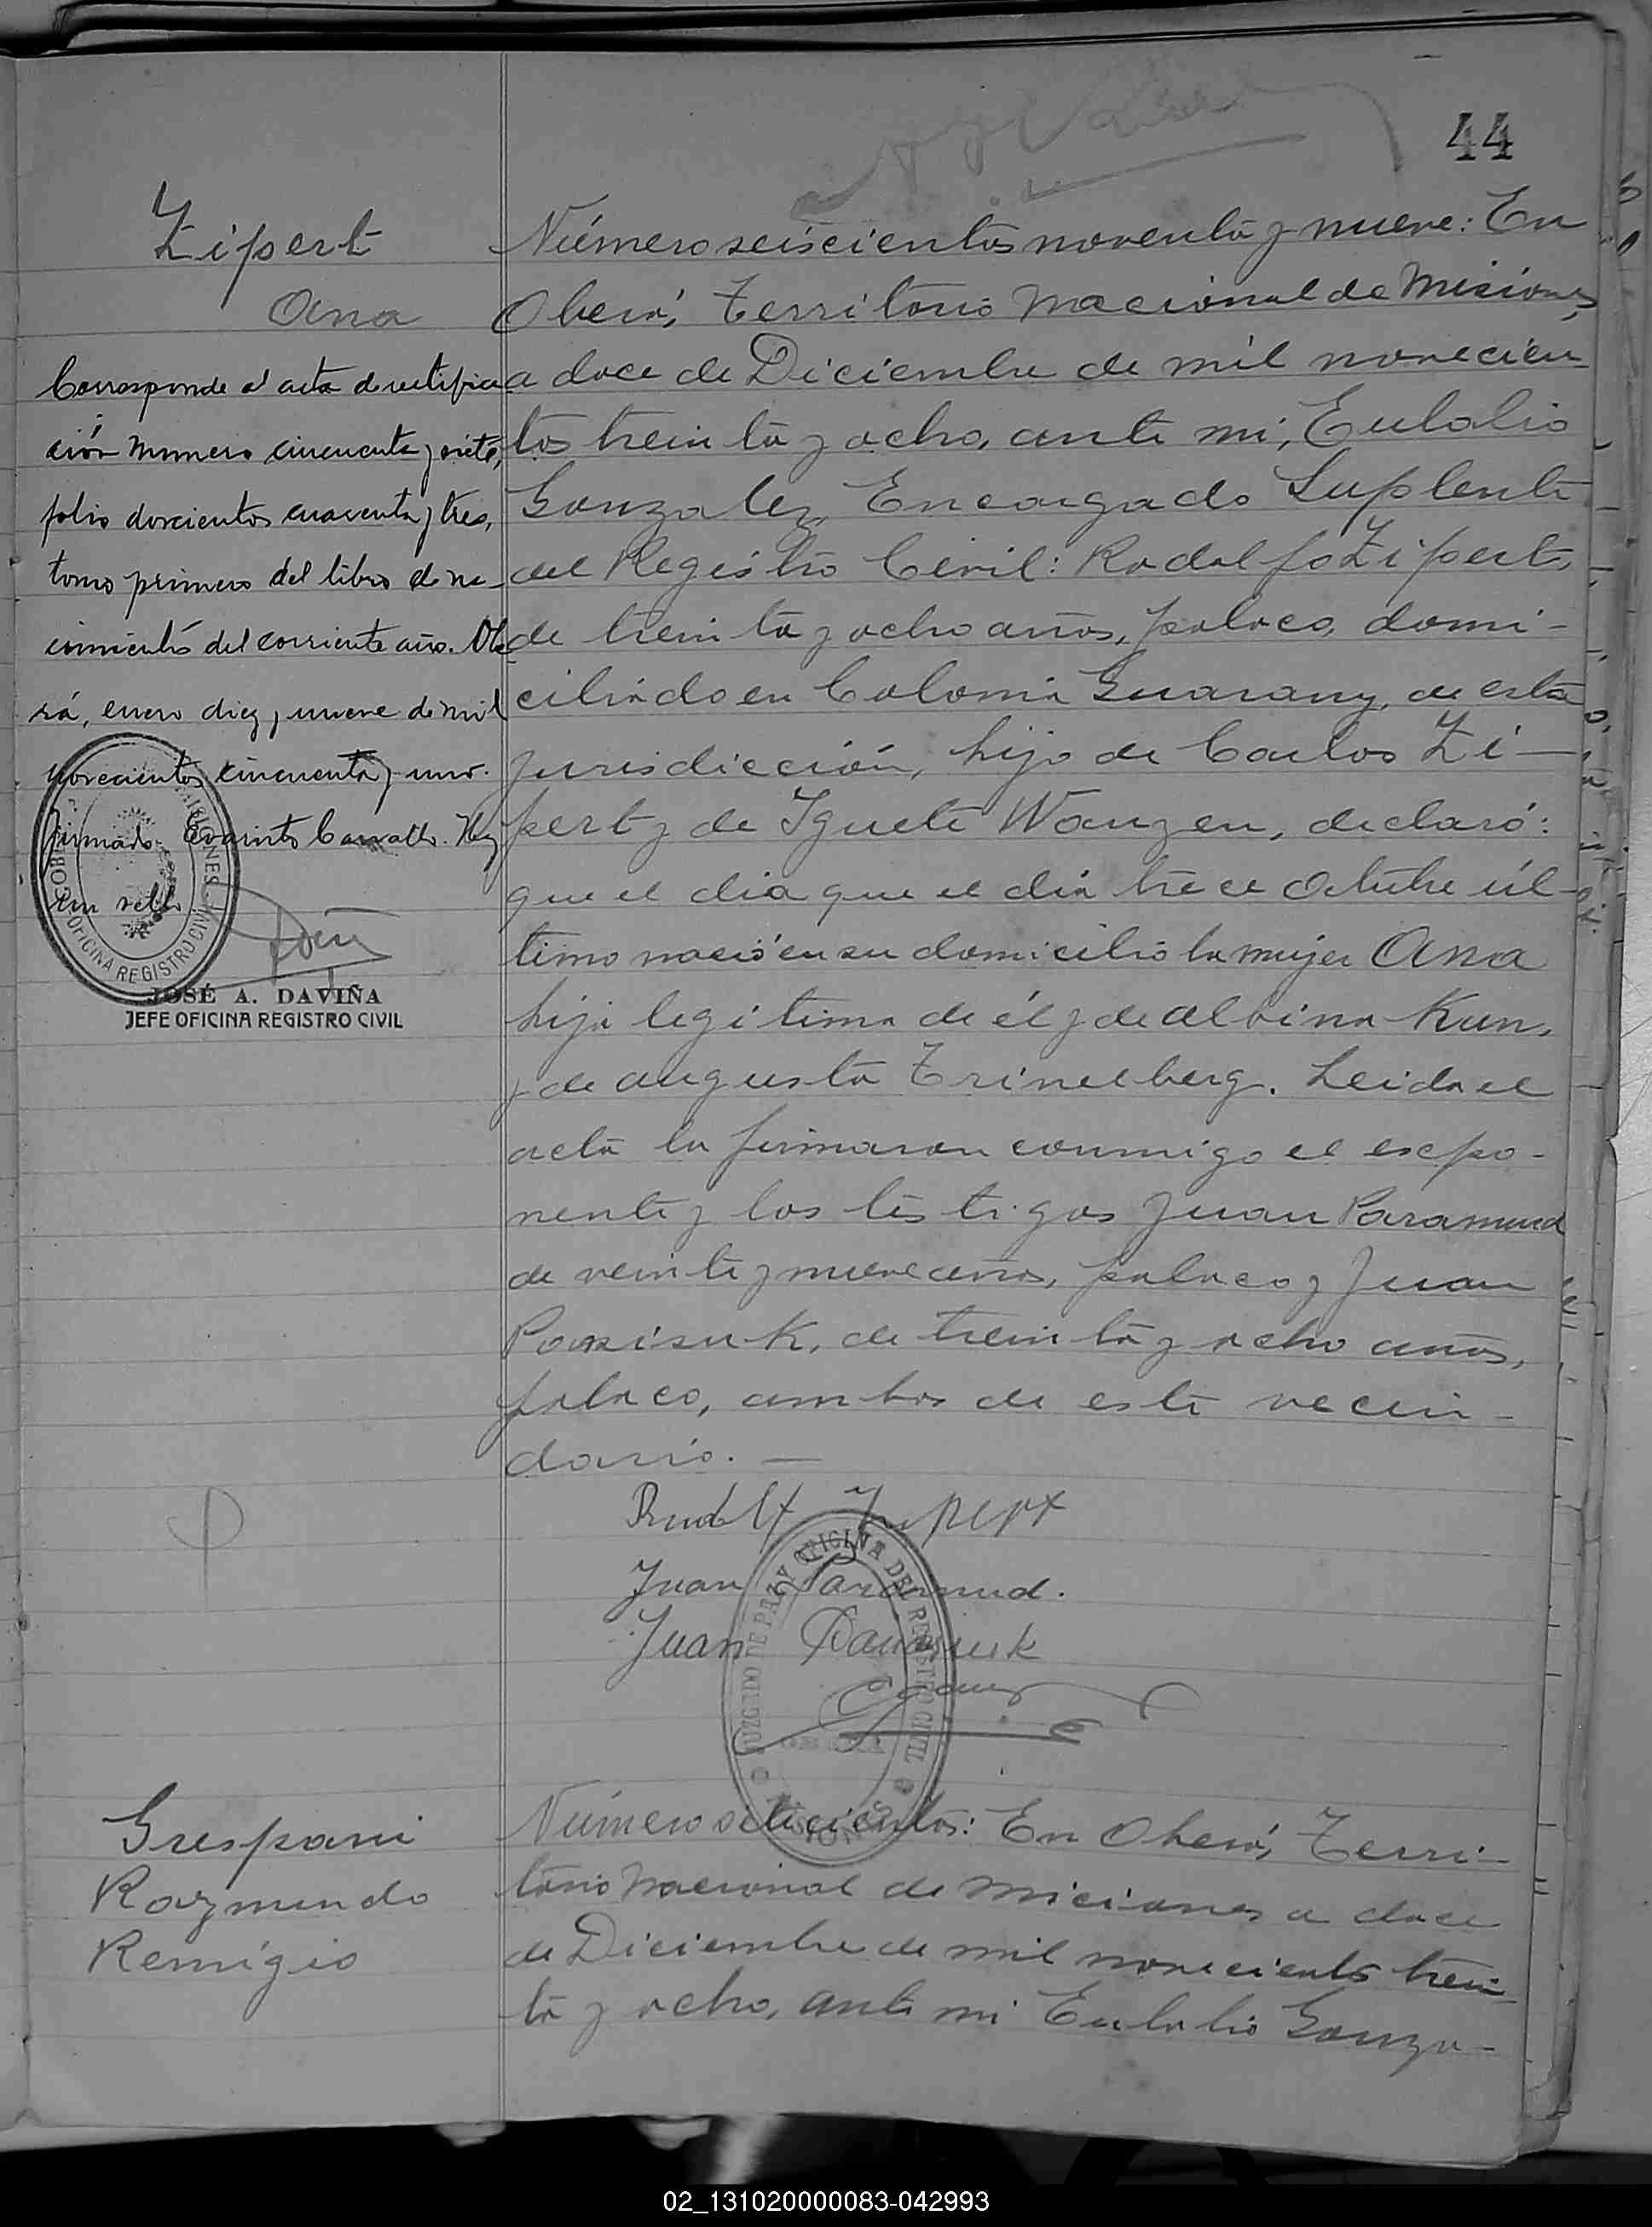 44
Zipert
Ana
Corresponde al acta de rectifica
ción número cincuenta y siete,
folio doscientos cuarenta y tres,
tomo primero del libro de na-
cimientos del corriente año. Obe
rá, enero diez y nueve de mil
novecientos cincuenta y uno.
Firmado Evaristo Carvallo. Hay
un sello
OFICINA REGISTRO CIVIL
JOSÉ A. DAVIÑA
JEFE OFICINA REGISTRO CIVIL
Número seiscientos noventa y nueve: En
Oberá, Territorio Nacional de Misiones,
a doce de Diciembre de mil novecien-
tos treinta y ocho, ante mi, Eulalio
Gonzalez, Encargado Suplente
del Registro Civil: Rodolfo Zipert,
de treinta y ocho años, polaco, domi-
ciliado en Colonia Guarany, de esta
jurisdicción, hijo de Carlos Zi-
pert y de Iguete Wanzen, declaró:
que el dia que el día trece Octubre úl-
timo nació en su domicilio la mujer Ana
hija legitima de él y de Albina Kun,
y de Augusta Trinelberg. Leida el
acta la firmaron conmigo el expo-
nente y los testigos Juan Paramud
de veinte y nueve años, polaco y Juan
de treinta y ocho años,
polaco, ambos de este vecin-
dario. —
Rudolf Zipert
Juan Paramud.
Juan
JUZGADO DE PAZ Y OFICINA DEL REGISTRO CIVIL
MISIONES
Grespani
Raymundo
Remigio
Número setecientos: En Oberá, Terri-
torio Nacional de Misiones a doce
de Diciembre de mil novecientos trein-
ta y ocho, ante mi Eulalio Gonza-
02_131020000083-042993